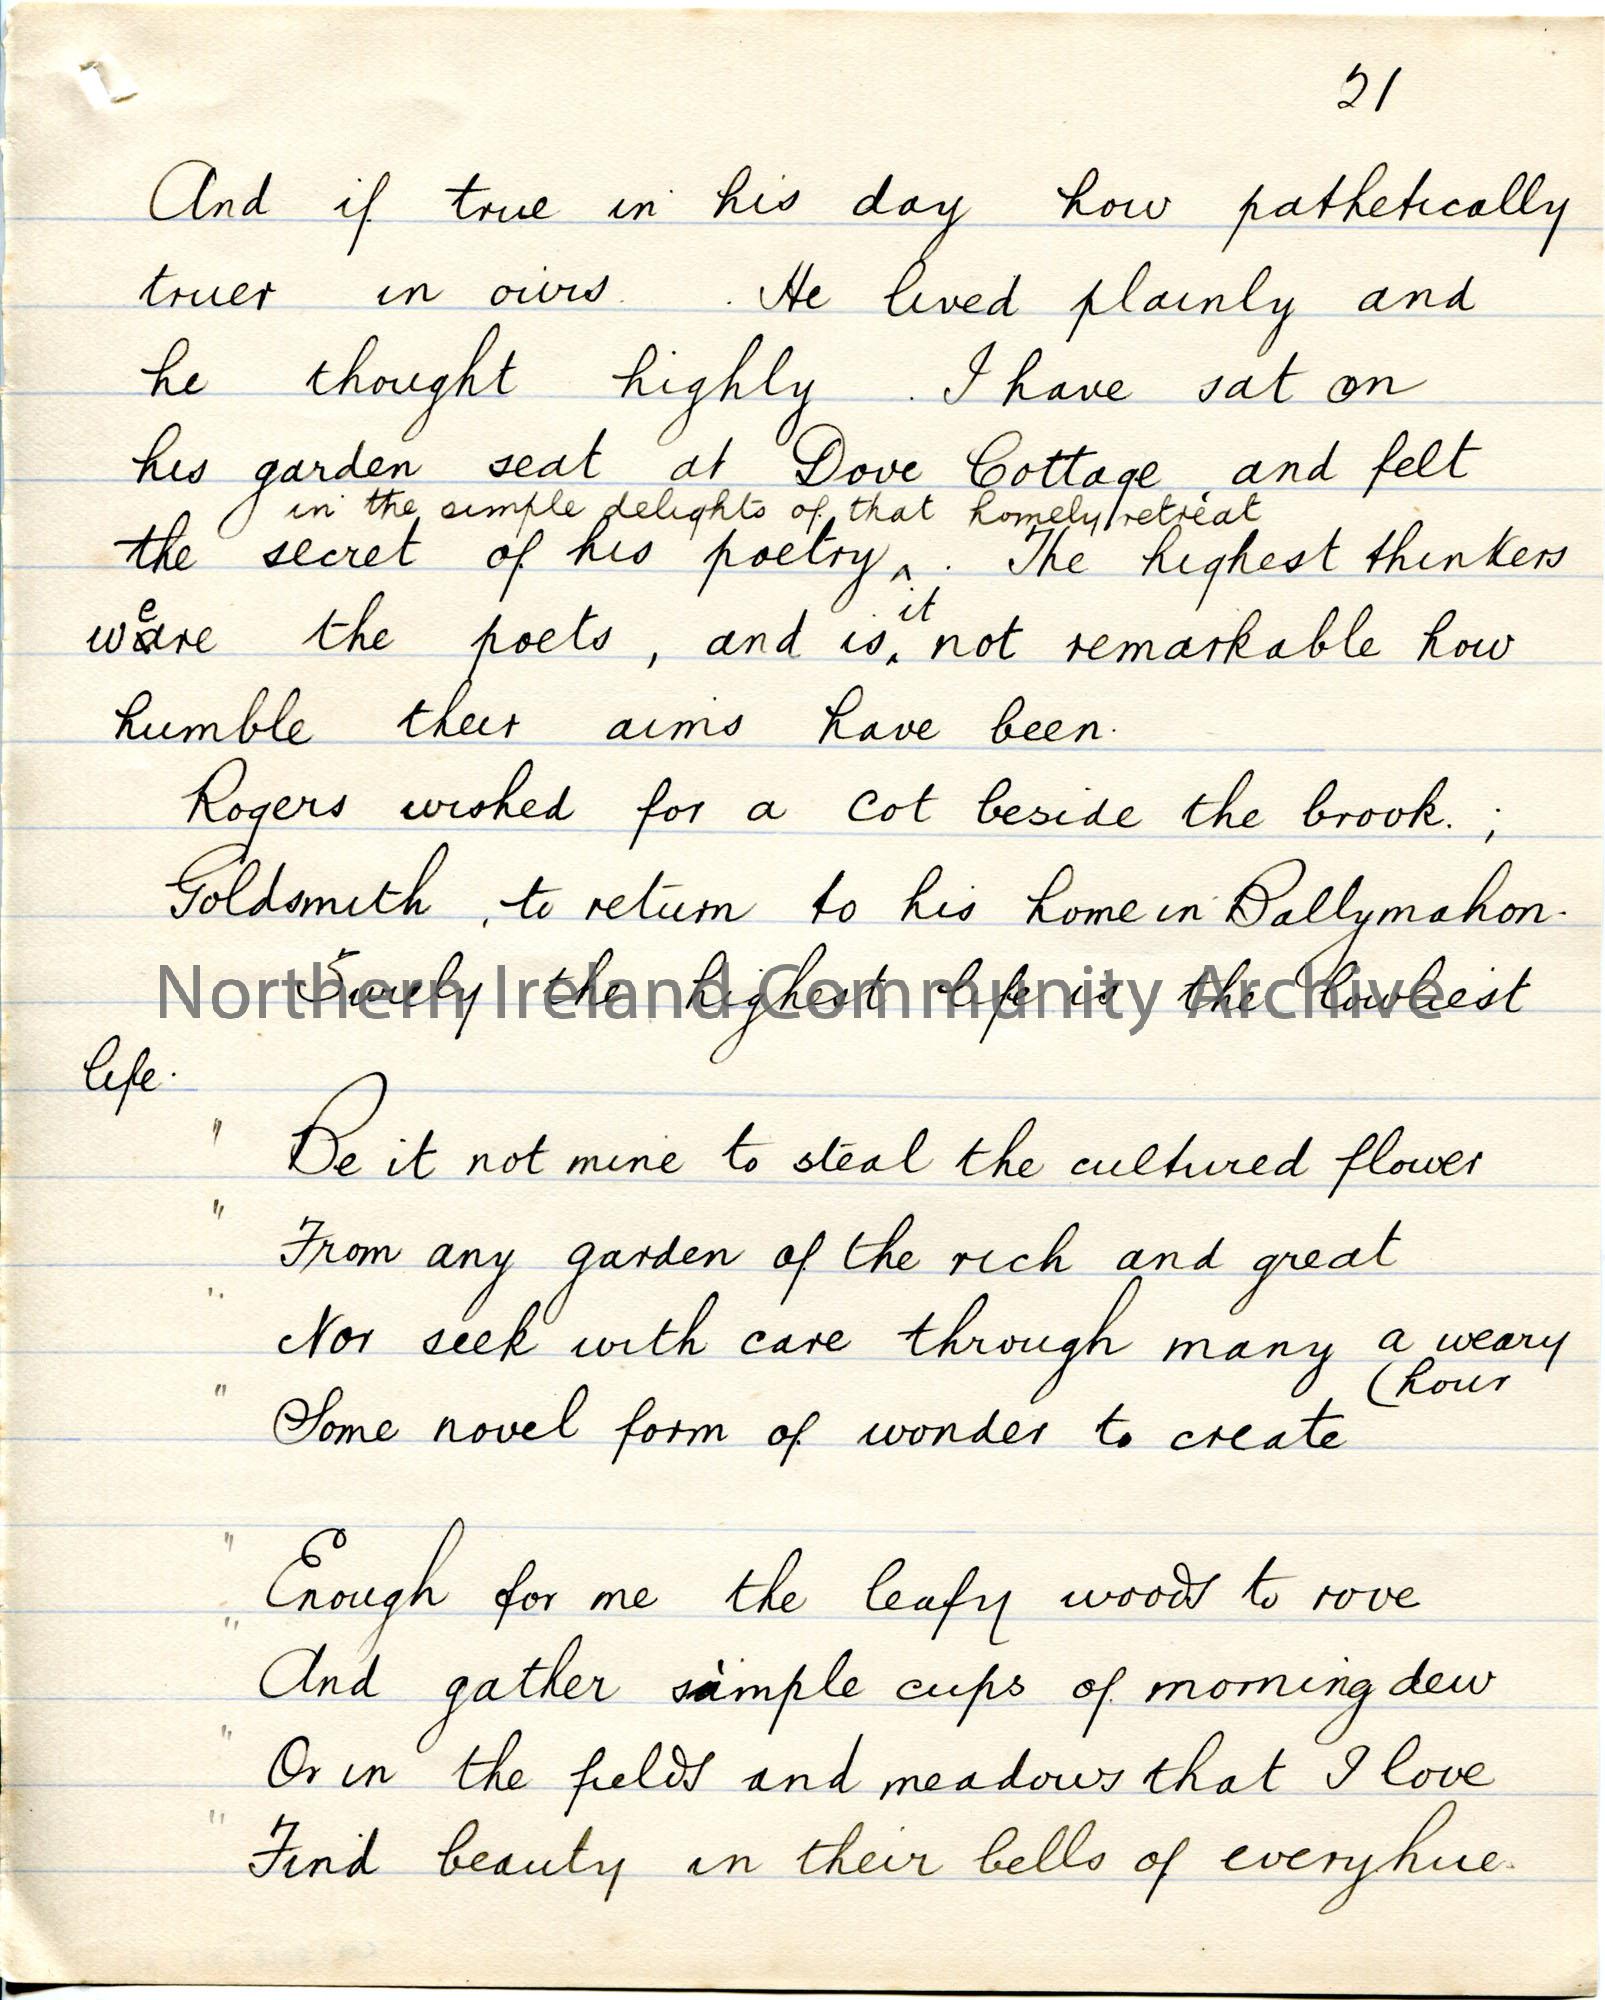 21
And if true in his day how pathetically
truer in ours. He lived plainly and
he thought highly. I have sat on
his garden seat at Dove Cottage, and felt
in the simple delights of that homely retreat
the secret of his poetry ^. The highest thinkers
it
were the poets, and is ^ not remarkable how
humble their aims have been.
Rogers wished for a cot beside the brook. ;
Goldsmith, to return to his home in Ballymahon.
Surely the highest life is the lowliest
Northern Ireland Community Archive
life.
" Be it not mine to steal the cultured flower
" From any garden of the rich and great
" Nor seek with care through many a weary
(hour
" Some novel form of wonder to create
" Enough for me the leafy woods to rove
" And gather simple cups of morning dew
" Or in the fields and meadows that I love
" Find beauty in their bells of every hue.